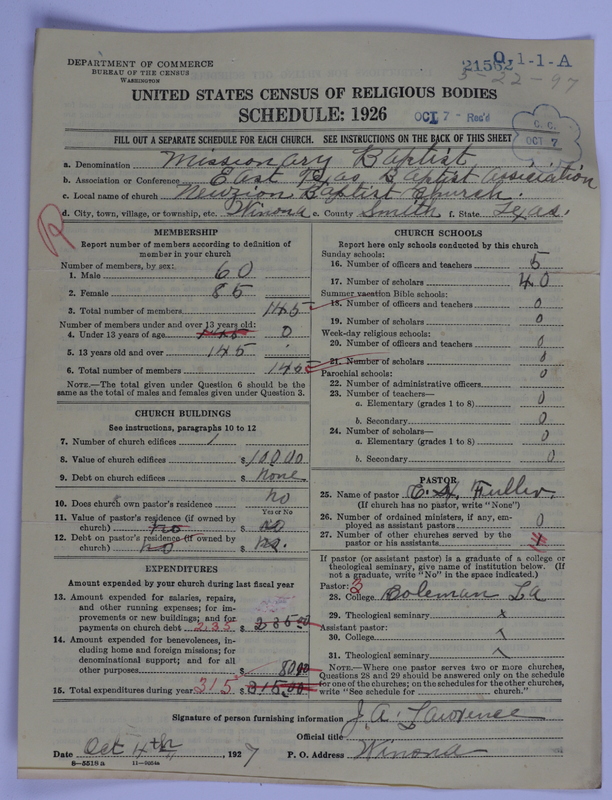 DEPARTMENT OF COMMERCE
BUREAU OF THE CENSUS
WASHINGTON
21562 0 1-1-A
3-22-97
UNITED STATES CENSUS OF RELIGIOUS BODIES
SCHEDULE: 1926
OCT 7 - Rec'd
C. C.
OCT 7
FILL OUT A SEPARATE SCHEDULE FOR EACH CHURCH. SEE INSTRUCTIONS ON THE BACK OF THIS SHEET
a. Denomination Missionary Baptist
b. Association or Conference East Texas Baptist Association
c. Local name of church Newzion Baptist Church.
d. City, town, village, or township, etc. Winona e. County Smith f. State Texas.
R
MEMBERSHIP
Report number of members according to definition of member in your church
Number of members, by sex:
1. Male 60
2. Female 85
3. Total number of members 145
Number of members under and over 13 years old:
4. Under 13 years of age 0
5. 13 years old and over 145
6. Total number of members 145
NOTE.—The total given under Question 6 should be the same as the total of males and females given under Question 3.
CHURCH BUILDINGS
See instructions, paragraphs 10 to 12
7. Number of church edifices 1
8. Value of church edifices $1000.00
9. Debt on church edifices $ none
10. Does church own pastor's residence? no
Yes or No
11. Value of pastor's residence (if owned by church) no $ no
12. Debt on pastor's residence (if owned by church) no $ no.
EXPENDITURES
Amount expended by your church during last fiscal year
13. Amount expended for salaries, repairs, and other running expenses; for improvements or new buildings; and for payments on church debt 235 $ 235.00
14. Amount expended for benevolences, including home and foreign missions; for denominational support; and for all other purposes $ 80.00
15. Total expenditures during year 315 $ 315.00
CHURCH SCHOOLS
Report here only schools conducted by this church
Sunday schools:
16. Number of officers and teachers 5
17. Number of scholars 40
Summer vacation Bible schools:
18. Number of officers and teachers 0
19. Number of scholars 0
Week-day religious schools:
20. Number of officers and teachers 0
21. Number of scholars 0
Parochial schools:
22. Number of administrative officers 0
23. Number of teachers—
a. Elementary (grades 1 to 8) 0
b. Secondary 0
24. Number of scholars—
a. Elementary (grades 1 to 8) 0
b. Secondary 0
PASTOR
25. Name of pastor Fuller
(If church has no pastor, write "None")
26. Number of ordained ministers, if any, employed as assistant pastors 0
27. Number of other churches served by the pastor or his assistants
If pastor (or assistant pastor) is a graduate of a college or theological seminary, give name of institution below. (If not a graduate, write "No" in the space indicated.)
Pastor: 3
28. College Coleman La
29. Theological seminary x
Assistant pastor:
30. College
31. Theological seminary
NOTE.—Where one pastor serves two or more churches, Questions 28 and 29 should be answered only on the schedule for one of the churches; on the schedules for the other churches, write "See schedule for church."
Signature of person furnishing information J. A. Lawrence
Official title
Date Oct 4th, 1927 P. O. Address Winona
8-5518a 11-9034a